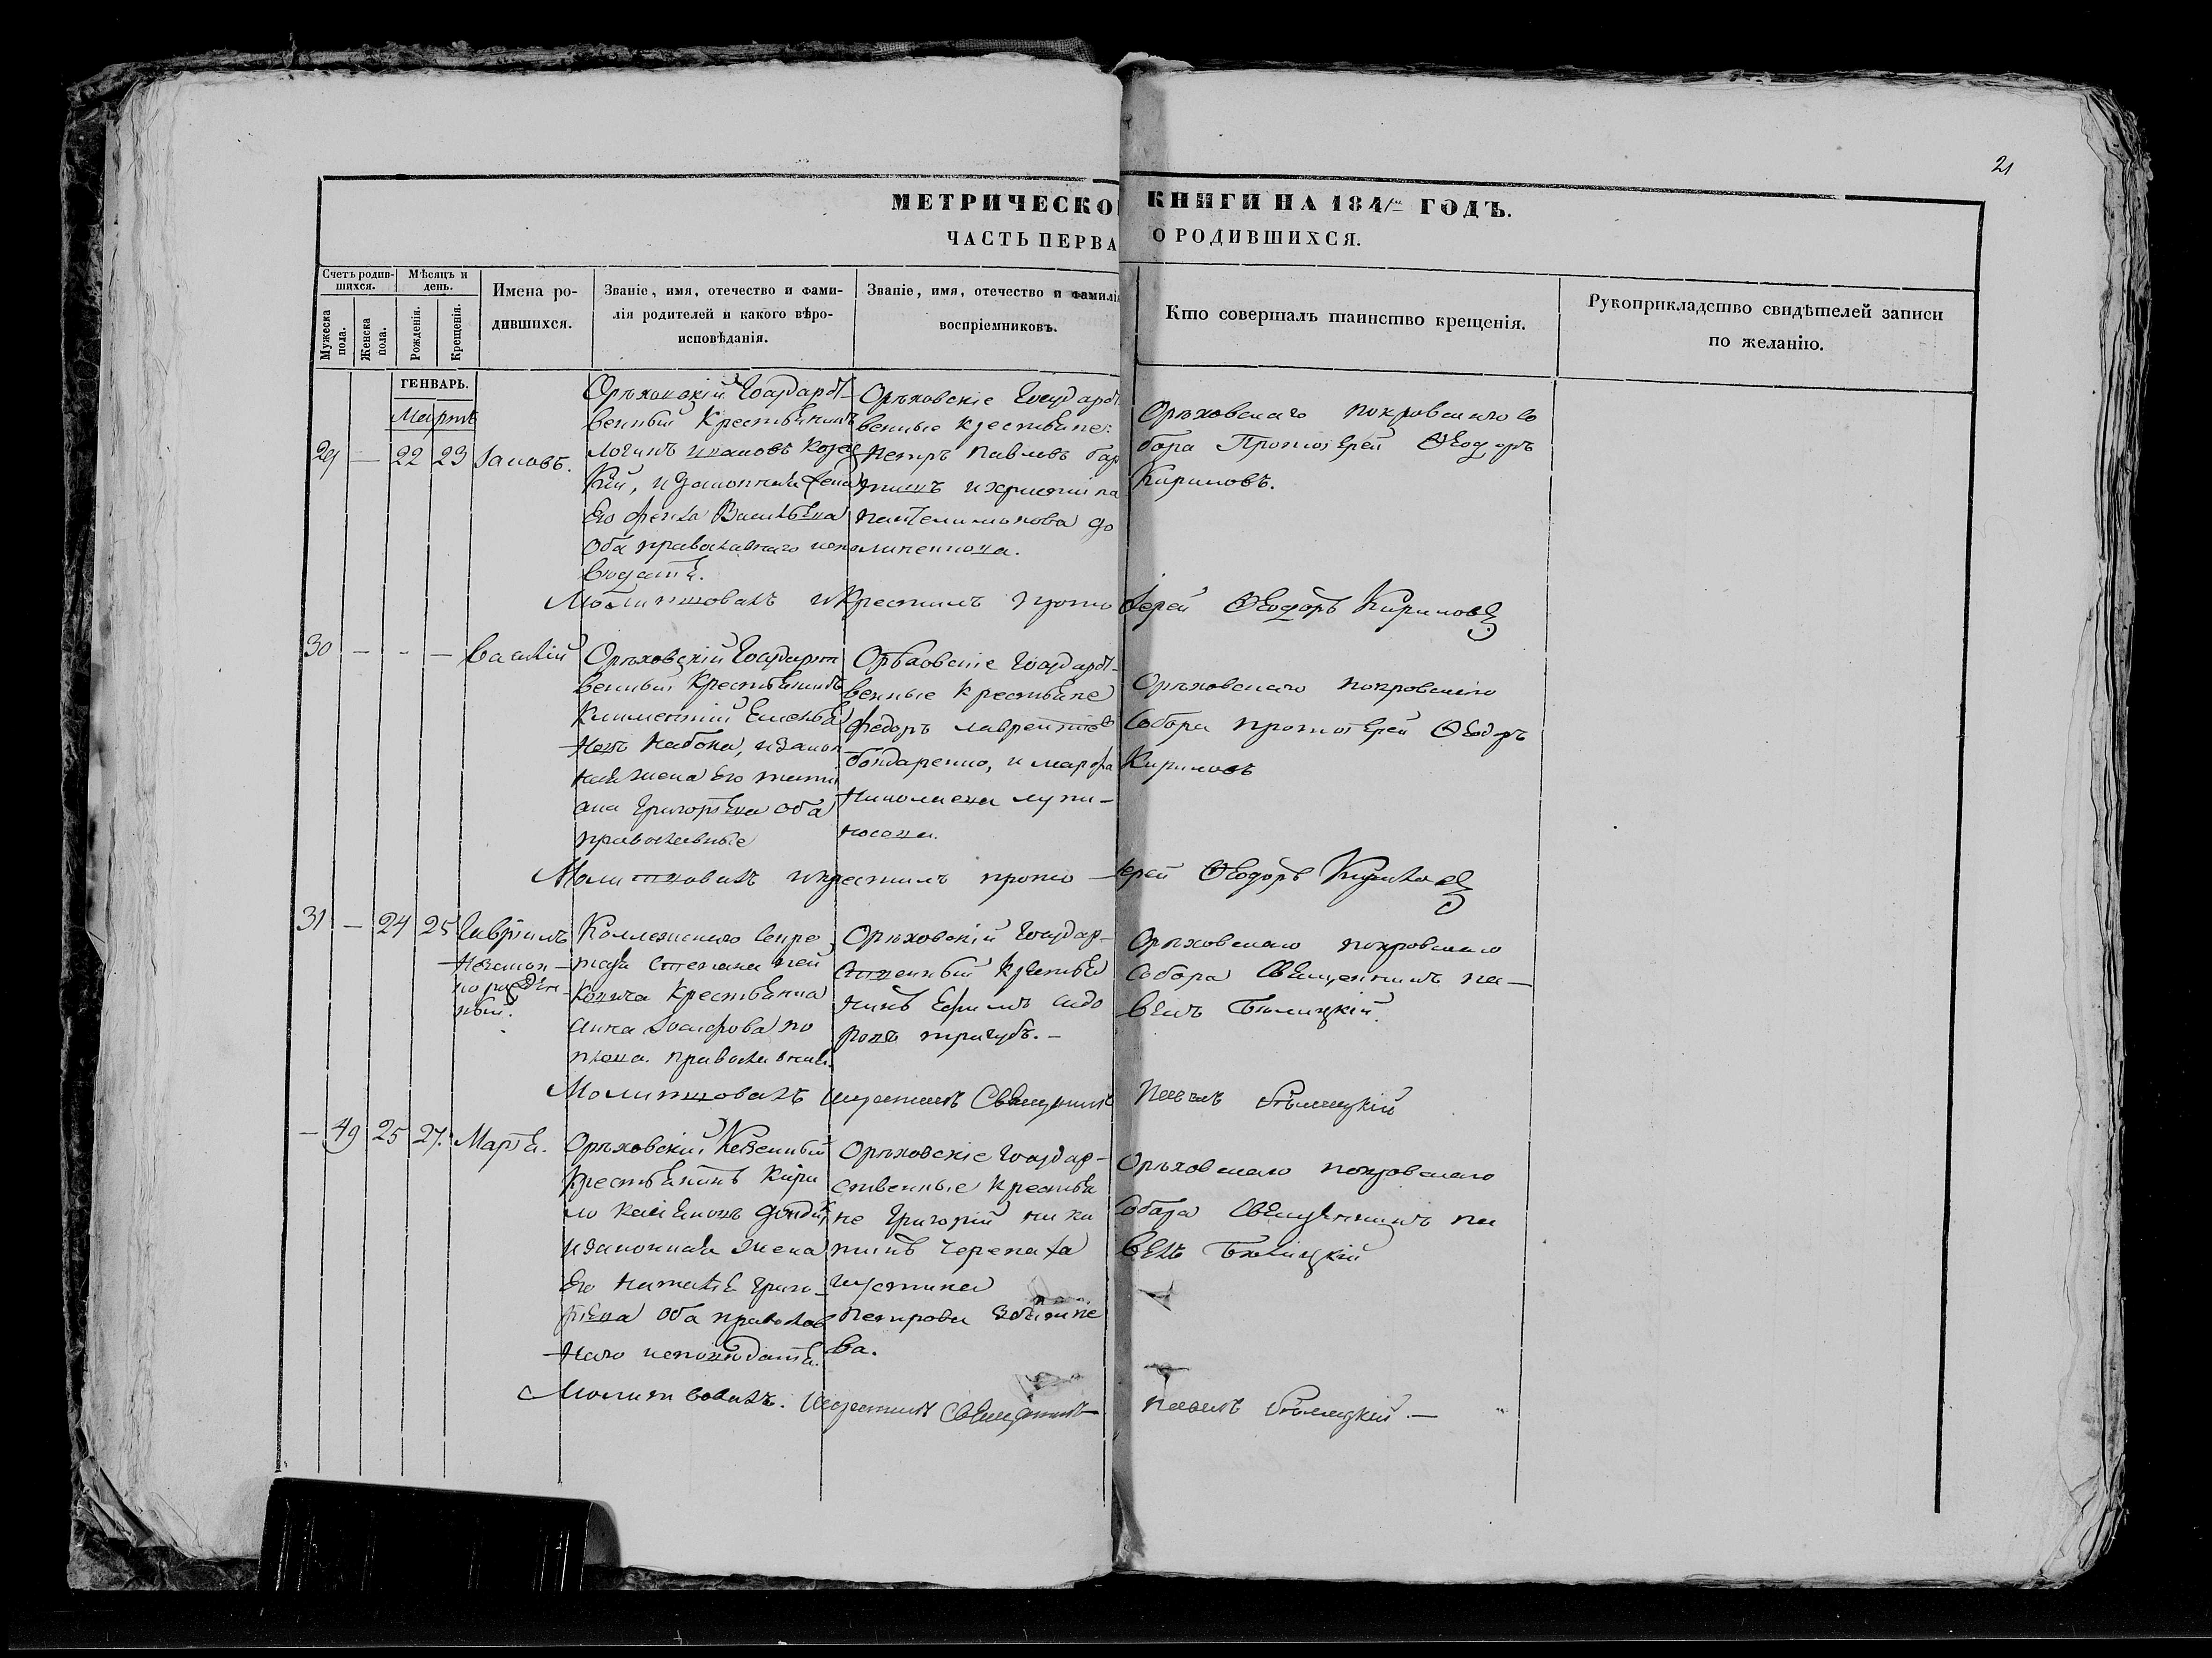 21
МЕТРИЧЕСКО КНИГИ НА 1841 ГОДЪ.
ЧАСТЬ ПЕРВА О РОДИВШИХСЯ.
Счетъ родив-
шихся.
Мужеска
пола.
Женска
пола.
Мѣсяцъ и
день.
Рожденія.
Крещенія.
Имена ро-
дившихся.
Званіе, имя, отечество и фами-
лія родителей и какого вѣро-
исповѣданія.
Званіе, имя, отечество и фамилі
воспріемниковъ.
Кто совершалъ таинство крещенія.
Рукоприкладство свидѣтелей записи
по желанію.
ГЕНВАРЬ.
Мартъ
29 — 22 23 Іаковъ.
Орѣховскій Государст-
венный Крестьянинъ
Логинъ Ивановъ
кій, и законная жена
Его Васильева
оба православнаго испо
Орѣховскіе Государст
венные крестьяне:
Петръ Павловъ
и христина
Пантелимонова
Орѣховскаго покровскаго со
бора Протоіерей Ѳеодоръ
Кириловъ.
Молитвовалъ и крестилъ протоіерей Ѳеодоръ Кириловъ
30 — - — Василій
Орѣховскій Государст
венный Крестьянинъ
Климентій
Набока, и закон
ная жена Его тати
ана Григорьева оба
православные
Орѣховскіе Государст-
венные крестьяне
Федоръ лаврентіевъ
бондаренко, и марфа
Николаева
Орѣховскаго покровскаго
Собора протоіерей Ѳеодоръ
Кириловъ
Молитвовалъ и крестилъ прото-іерей Ѳеодоръ Кириловъ
31 — 24 25 Гавріилъ
Незакон-
норожден-
ный.
Коллежскаго Секре
таря Степана
Крестьянка
анна
православная.
Орѣховскій Государ-
ственный Крестья
нинъ Ефимъ сидо
ровъ тригубъ. —
Орѣховскаго покровскаго
Собора Священникъ па-
велъ Бѣлицкій.
Молитвовалъ и крестилъ Священникъ Павелъ Бѣлицкій
— 49 25 27. Марѳа.
Орѣховскій Казенный
Крестьянинъ Кири
ло
и законная жена
Его наталія Григо-
рьева оба православ
наго исповѣданія.
Орѣховскіе Государ-
ственные крестья
не Григорій ники
тинъ черепаха
иустинна
Петрова
ва.
Орѣховскаго покровскаго
Собора Священникъ па
велъ Бѣлицкій
Молитвовалъ. и крестилъ Священникъ павелъ Бѣлицкій. —